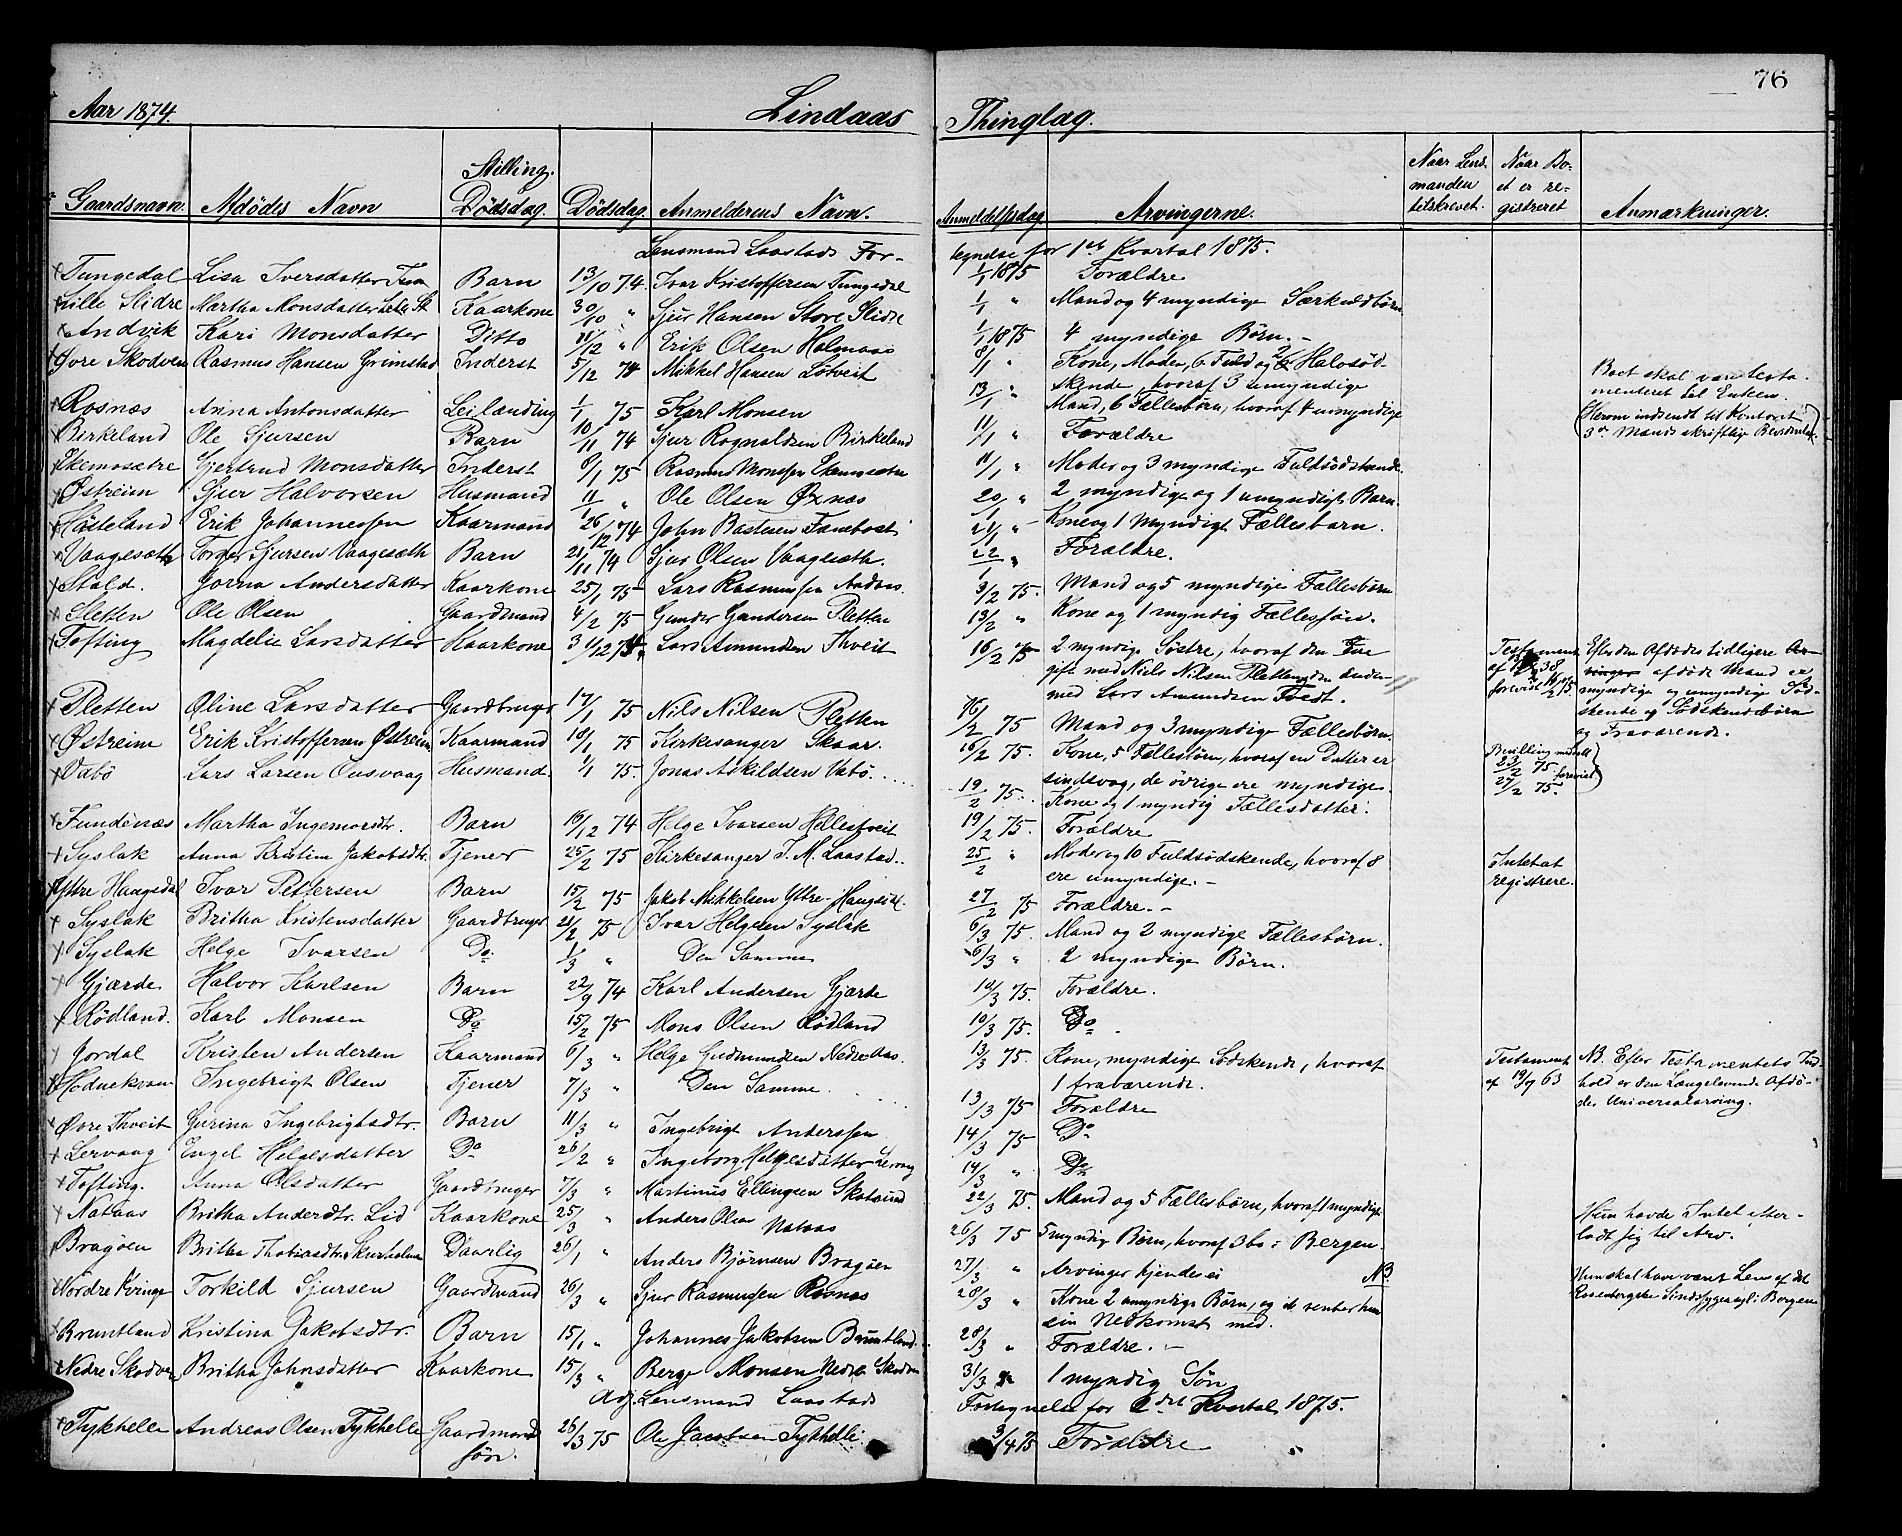 76
Aar 1874. Lindaas Thinglag.
Gaardsnavn. Afdødes Navn Stilling. Dødsdag. Dødsdag. Anmelderens Navn. Anmeldelsesdag Arvingerne. Naar Lensmanden tilskrevet. Naar Boet er registreret Anmærkninger.
Lensmand Laastads Fortegnelse for 1ste Kvartal 1875.
Tungedal Lisa Iversdatter Barn 13/10 74 Ivar Kristoffersen Tungedal 1/1 1875 Forældre
Lille Slidre Martha Monsdatter Kaarkone 30/10 " Sjur Hansen Store Slidre 1/1 " Mand og 4 myndige Særkuldbørn
Andvik Kari Monsdatter Ditto 11/12 " Erik Olsen Holmaas 1/1 1875 4 myndige Børn.
Øvre Skodven Rasmus Hansen Grimstad Inderst 5/12 74 Mikkel Hansen Løtveit 8/1 " Kone, Moder, 6 Fuld og 2 Halvsød-
skende, hvoraf 3 umyndige
Boet skal være testa-
menteret til Enken.
(Herom indsendt til Kontoret
3de Mands skriftlig
Rosnæs Anna Antonsdatter Leilænding 1/1 75 Karl Monsen 13/1 " Mand, 6 Fællesbørn, hvoraf 4 umyndige
Birkeland Ole Sjursen Barn 10/11 74 Sjur Rognaldsen Birkeland 11/1 " Forældre
Skemosætre Gjertrud Monsdatter Inderst 6/1 75 Rasmus Monssen 11/1 " Moder og 3 myndige Fuldsødskende.
Østreim Sjur Halvorsen Husmand 11/1 " Ole Olsen Oxnæs 20/1 " 2 myndige og 1 umyndigt Barn
Hodeland Erik Johannessen Kaarmand 26/12 74 John Bastesen Fanebost 21/1 " Kone og 1 Myndigt Fællesbarn.
Vaagesæth Torger Sjursen Vaagesæth Barn 21/11 74 Sjur Olsen Vaagesæth. 22/1 " Forældre.
Stald. Jorna Andersdatter Kaarkone 25/1 75 Lars Rasmussen Andaas 3/2 75. Mand og 5 myndige Fællesbørn
Sletten Ole Olsen Gaardmand 4/2 75 Gunder Gundersen Pletten 13/2 " Kone og 1 myndig Fællessøn.
Tofting Magdeli Larsdatter Kaarkone Lars Amundsen Thveit 16/2 75 2 myndige Søstre, hvoraf den Ene
gift med Niels Nilsen Pletten den Anden
med Lars Amundsen Tvedt.
Testament
forevist 16/2 75.
Efter den Afdødes tidligere
afdøde Mand er
myndige og umyndige Sød-
skende og Sødskendebørn
og Fraværende.
Pletten Oline Larsdatter Gaardbruger 17/1 75 Nils Nilsen Pletten 16/2 75 Mand og 3 myndige Fællesbørn.
Østreim Erik Kristoffersen Østreim Kaarmand 18/1 75 Kirkesanger Skaar. 16/2 75. Kone, 5 Fællesbørn, hvoraf en Datter er
sindsvag, de øvrige ere myndige.
Bevilling meddelt
23/2 75 forevist
27/2 75.
Vabø Lars Larsen Husmand. 1/1 75. Jonas Askildsen Vabø 19/2 75. Kone og 1 myndig Fællesdatter.
Fundenæs Martha Ingemorsdtr. Barn 16/12 74 Helge Ivarsen Hellestveit 19/2 75. Forældre
Syslak Anna Kristine Jakobsdtr. Tjener 25/2 75 Kirkesanger J. M. Laastad. 25/2 " Moder og 10 Fuldsødskende, hvoraf 8
ere umyndige.
Intet at
registrere.
Ytre Haugsdal Ivar Pettersen Barn 15/2 75 Jakob Mikkelsen Ytre-Haugsdal. 27/2 75 Forældre.
Syslak Britha Kristensdatter Gaardbruger 21/2 75 Ivar Helgesen Syslak 6/3 75. Mand og 2 myndige Fællesbørn.
Syslak Helge Ivarsen Do. 1/3 " Den Samme 6/3 " 2 myndige Børn.
Gjærde Halvor Karlsen Barn 22/9 74 Karl Andersen Gjærde 10/3 75. Forældre.
Rødland. Karl Monsen Do 15/2 75 Mons Olsen Rødland 10/3 75. Do.
Jordal Kristen Andersen Kaarmand 6/3 " Helge Gudmundsen Nedre Aas. 13/3 75. Kone, myndige Sødskende, hvoraf
1 fraværende.
Testament
af 19/9 63
NB. Efter Testamentets Ind-
hold er den Længstlevende Afdø-
des Universalarving.
Hodnekvam Ingebrigt Olsen Tjener 7/3 " Den Samme 13/3 75 Forældre
Øvre Thveit Gurina Ingebrigtsdtr. Barn 11/3 " Ingebrigt Anderssen 14/3 75 Do
Lervaag Engel Helgesdatter Do 26/2 " Ingeborg Helgesdatter Lervaag 14/3 " Do
Tofting. Anna Olsdatter Gaardbruger 7/3 " Martinus Ellingsen 22/3 75. Mand og 5 Fællesbørn, hvoraf 1 myndigt
Nataas Britha Andersdtr. Lid Kaarkone 25/3 " Anders Olsen Nataas 26/3 75 5 myndig Børn, hvoraf 3 bo i Bergen.
Hun havde Intet efter-
ladt sig til Arv.
Bragøen Britha Thobiasdtr. Skurholmen Daarlig 26/1 " Anders Bjørnsen Bragøen 27/3 " Arvinger kjendes ei NB.
Hun skal have været Lem af det
Rosenbergske Sindssygeasyl i Bergen
Nordre Kvinge Torkild Sjursen Gaardmand 26/3 " Sjur Rasmussen Rosnæs 28/3 " Kone 2 umyndige Børn, og
sin Nedkomst med.
Bruntland Kristina Jakobsdtr. Barn 15/1 " Johannes Jakobsen Bruntland. 28/3 " Forældre.
Nedre Skodven Britha Johnsdatter Kaarkone 15/3 " Berge Monsen Nedre Skodven 31/3 " 1 myndig Søn
Adj. Lensmand Laastads Fortegnelse for 2det Kvartal 1875.
Tykhelle Andreas Olsen Tykhelle Gaardmands
søn. 26/3 75 Ole Jacobsen Tykhelle 3/4 75 Forældre